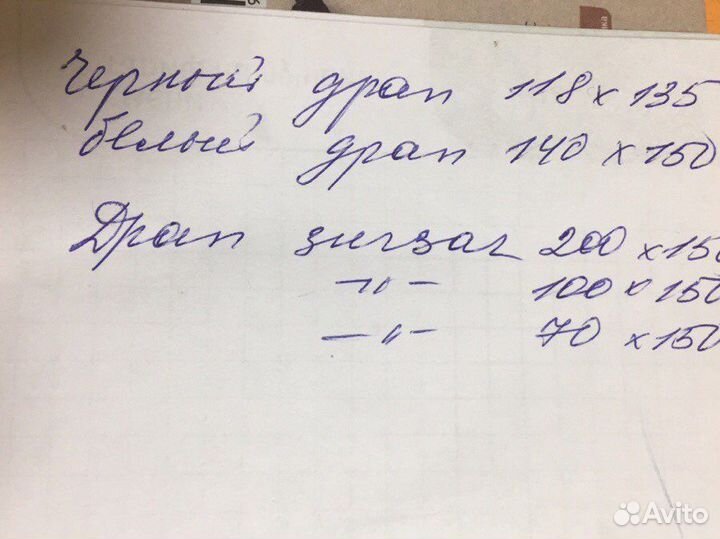 Черный драп 118 x 135
белый драп 140 x 150
Драп зигзаг 200 x 150
—〃— 100 x 150
—〃— 70 x 150
Avito